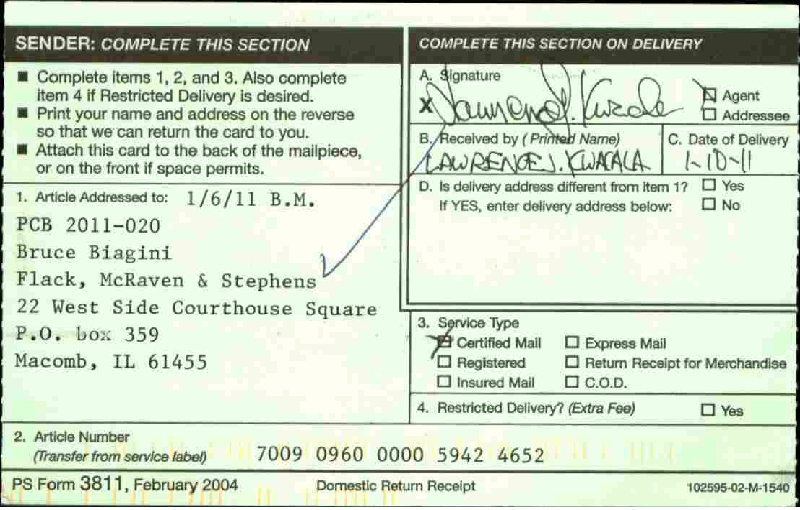 SENDER: COMPLETE THIS SECTION
■ Complete items 1, 2, and 3. Also complete
item 4 if Restricted Delivery is desired.
■ Print your name and address on the reverse
so that we can return the card to you.
■ Attach this card to the back of the mailpiece,
or on the front if space permits.
1. Article Addressed to: 1/6/11 B.M.
PCB 2011-020
Bruce Biagini
Flack, McRaven & Stephens
22 West Side Courthouse Square
P.O. box 359
Macomb, IL 61455
2. Article Number
(Transfer from service label) 7009 0960 0000 5942 4652
COMPLETE THIS SECTION ON DELIVERY
A. Signature
X
☒ Agent
☐ Addressee
B. Received by (Printed Name)
LAWRENCE J. KWACALA
C. Date of Delivery
1-10-11
D. Is delivery address different from item 1? ☐ Yes
If YES, enter delivery address below: ☐ No
3. Service Type
☒ Certified Mail ☐ Express Mail
☐ Registered ☐ Return Receipt for Merchandise
☐ Insured Mail ☐ C.O.D.
4. Restricted Delivery? (Extra Fee) ☐ Yes
PS Form 3811, February 2004 Domestic Return Receipt 102595-02-M-1540